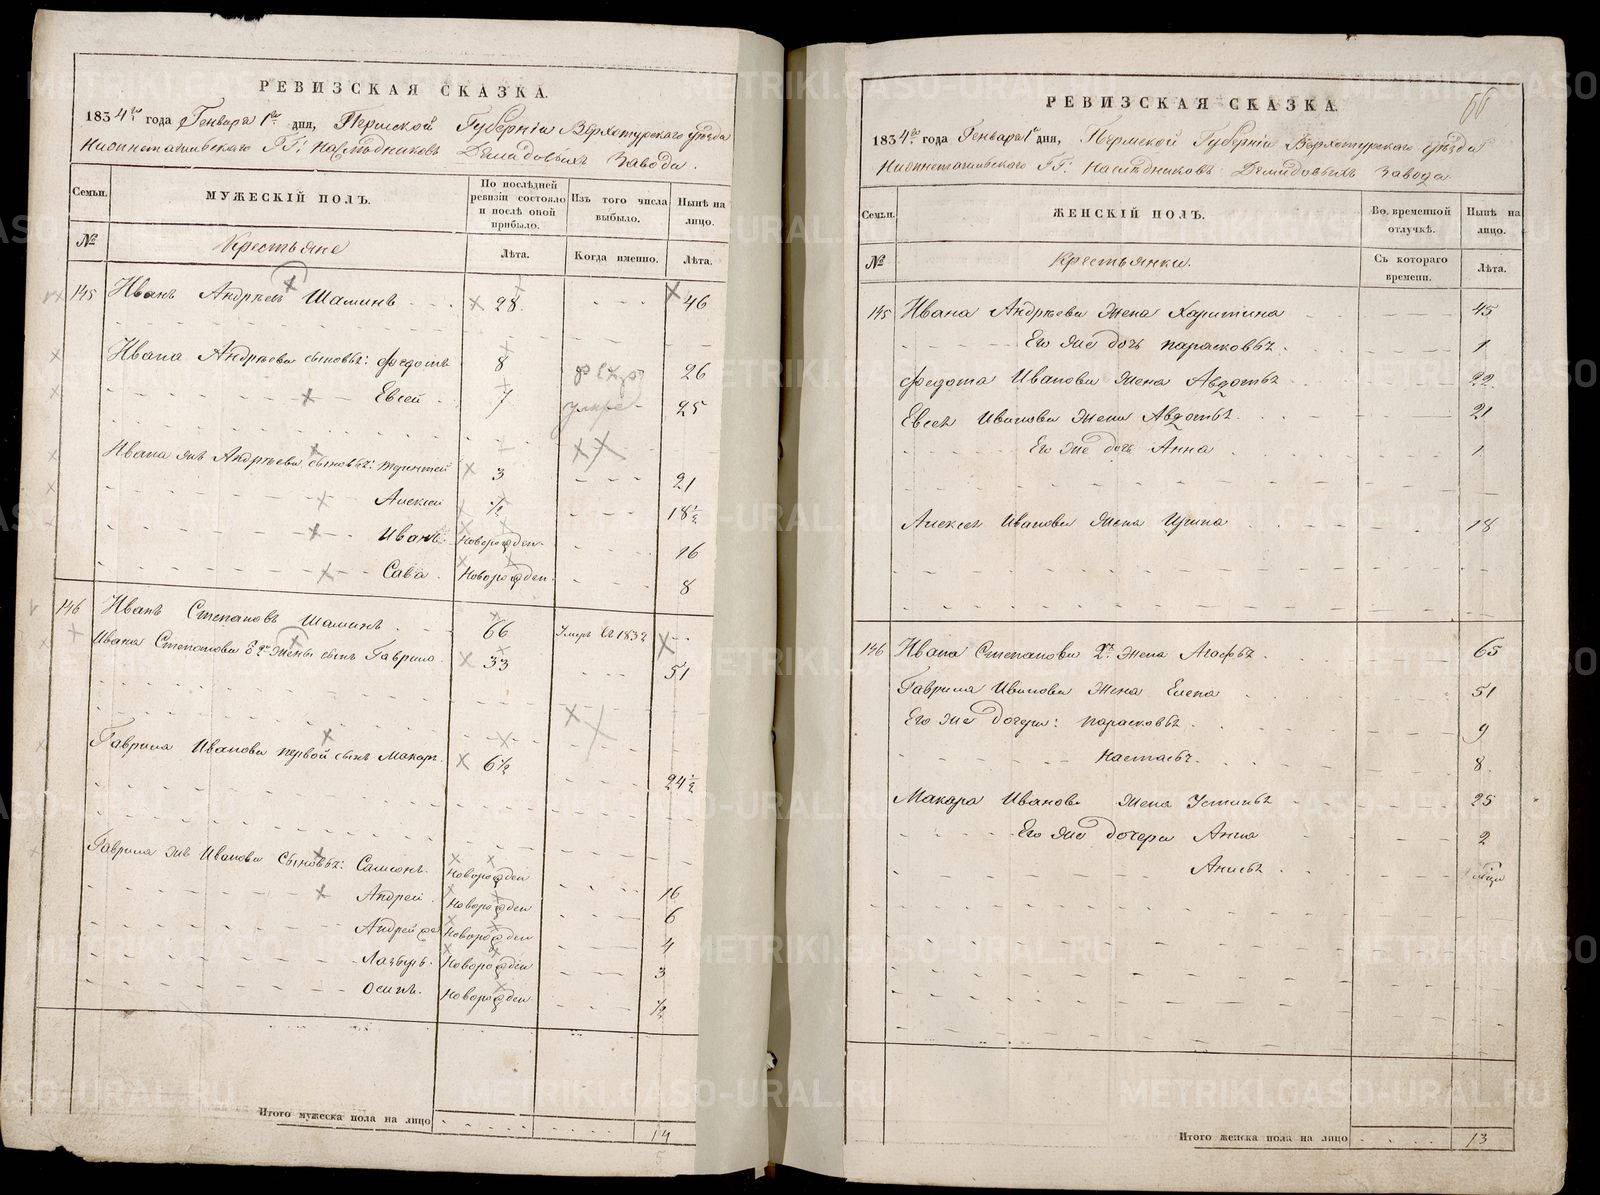 РЕВИЗСКАЯ СКАЗКА.
1834го года Генваря 1го дня, Пермской Губернiи Верхотурскаго уѣзда
Нижнетагильскаго ГГ. Наслѣдниковъ Демидовыхъ Завода.
Семьи.
МУЖЕСКIЙ ПОЛЪ.
По послѣдней ревизiи состояло и послѣ оной прибыло.
Изъ того числа выбыло.
Нынѣ на лицо.
№
Крестьяне
Лѣта.
Когда именно.
Лѣта.
145 Иванъ Андрѣевъ Шаминъ 28 46
Ивана Андрѣева сыновья: Федотъ 8 26
Евсей 7 25
Ивана же Андрѣева сыновья: 3 21
Алексей 1/2 18 1/2
Иванъ Новорожден 16
Сава Новорожден 8
146 Иванъ Степановъ Шаминъ 66 Умеръ въ 1832
Ивана Степанова 2й жены сынъ Гаврило 33 51
Гаврила Иванова первой сынъ Макаръ 6 1/2 24 1/2
Гаврила же Иванова Сыновья: Самсонъ Новорожден 16
Андрей Новорожден 6
Андрей же Новорожден 4
Лазарь Новорожден 3
Осипъ Новорожден 1/2
Итого мужеска пола на лицо 14
66
РЕВИЗСКАЯ СКАЗКА.
1834го года Генваря 1го дня, Пермской Губернiи Верхотурскаго уѣзда
Нижнетагильскаго ГГ. Наслѣдниковъ Демидовыхъ Завода
Семьи.
ЖЕНСКIЙ ПОЛЪ.
Во временной отлучкѣ.
Нынѣ на лицо.
№
Крестьянки.
Съ котораго времени.
Лѣта.
145 Ивана Андрѣева жена Харитина 45
Его же дочь Парасковья 1
Федота Иванова жена Авдотья 22
Евсея Иванова жена Авдотья 21
Его же дочь Анна 1
Алексея Иванова жена Ирина 18
146 Ивана Степанова 2я жена Агафья 65
Гаврила Иванова жена Елена 51
Его же дочери: Парасковья 9
Настасья 8
Макара Иванова жена Устинья 25
Его же дочери Анна 2
Анисья
Итого женска пола на лицо 13
METRIKI.GASO-URAL.RU